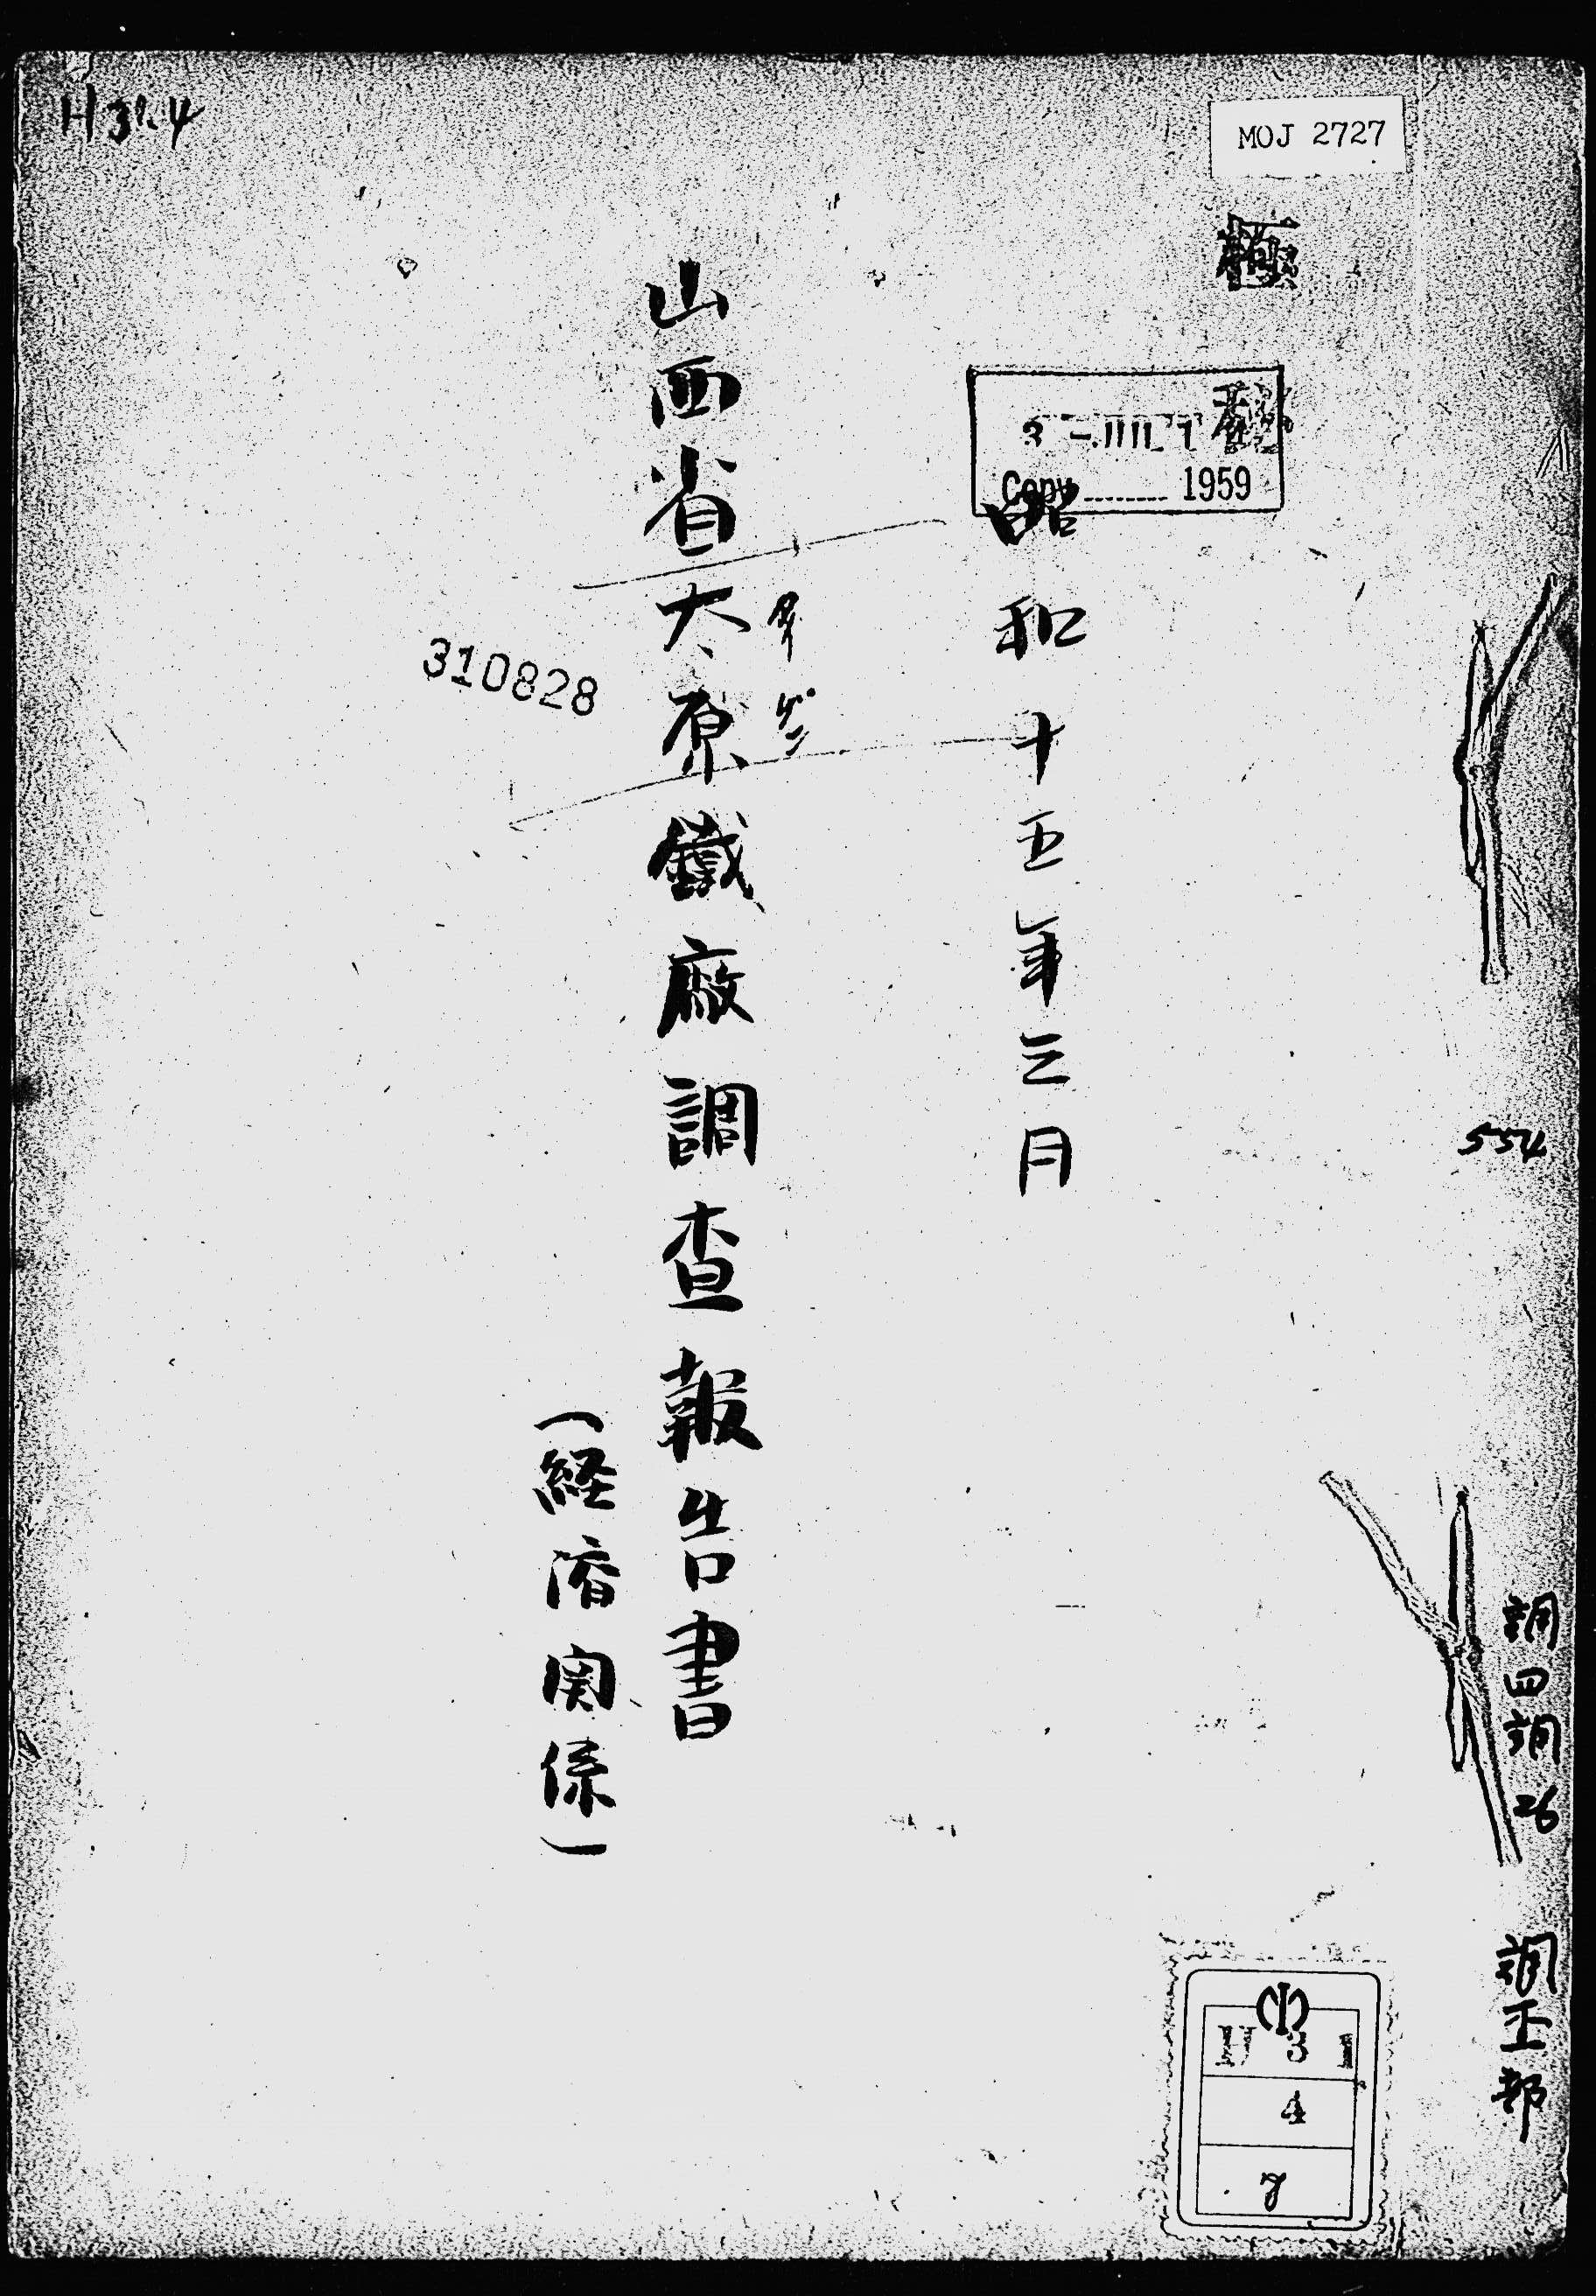 H31.4
MOJ 2727
極
秘
Copy ........ 1959
昭和十五年三月
山西省太原鐵廠調査報告書
タイ ゲン
(経済関係)
310828
554
調四調26
調王部
H 3 1
4
7